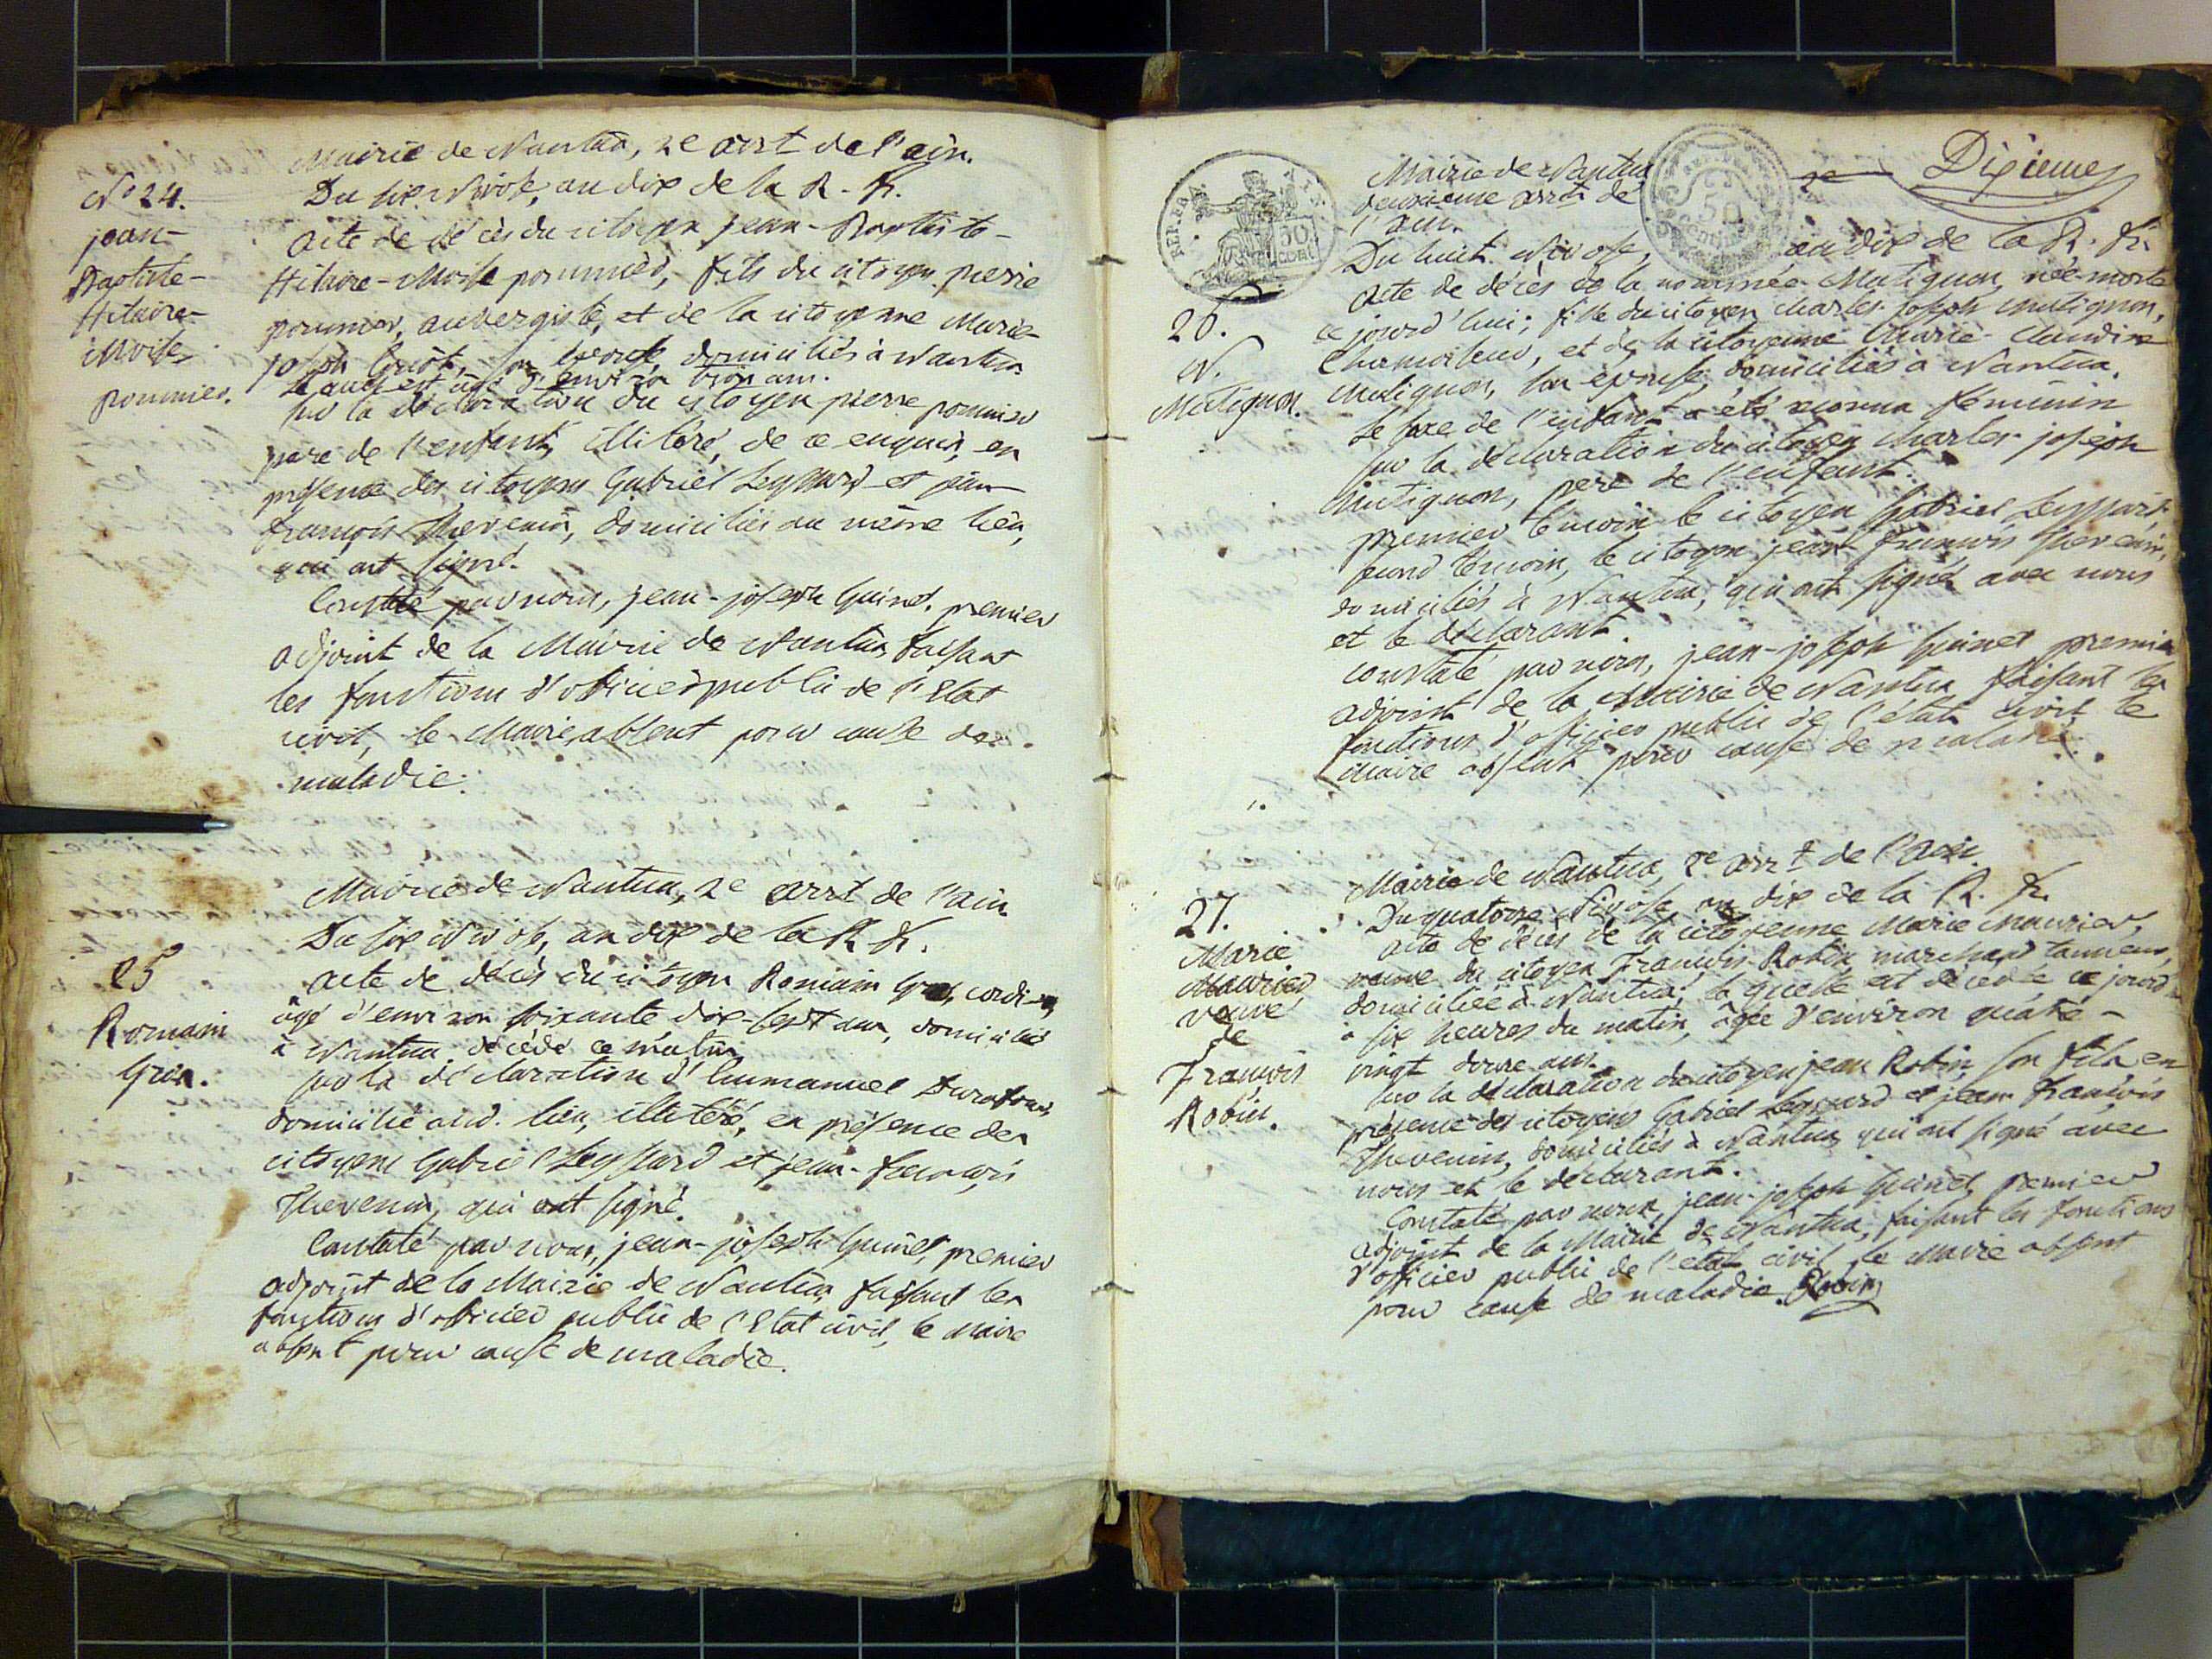 Mairie de Nantua, 2e arrt de l'ain.
N° 24.
Du six Nivose, an dix de la R. fr.
jean-
Baptiste-
hilaire-
Moise
pommier.
acte de décès du citoyen jean-Baptiste-
hilaire-Moise pommier, fils du citoyen pierre
pommier, aubergiste, et de la citoyenne Marie-
joseph son épouse, domiciliés à Nantua
Lequel est âgé d'environ trois ans.
sur la déclaration du citoyen pierre pommier
pere de l'enfant, illitéré, de ce enquis, en
présence des citoyens Gabriel Leyssard et jean-
françois Thevenin, domiciliés au même lieu,
qui ont signé.
Constaté par nous, jean-joseph Guinet, premier
adjoint de la Mairie de Nantua, faisant
les fonctions d'officier public de l'Etat
civil, le Maire absent pour cause de
maladie.
Mairie de Nantua, 2e arrt de l'ain
Du six Nivose, an dix de la R. fr.
25
Romain
Gros.
acte de décès du citoyen Romain
âgé d'environ soixante dix-sept ans, domicilié
à Nantua, décédé ce matin
sur la déclaration d'humanuel Durafour,
domicilié aud. lieu, illitéré, en présence des
citoyens Gabriel Leyssard et jean-françois
Thevenin, qui ont signé.
Constaté par nous, jean-joseph Guinet, premier
adjoint de la Mairie de Nantua, faisant les
fonctions d'officier public de l'Etat civil, le Maire
absent pour cause de maladie.
Dixieme
REP. FRA.
50
cent
50
centimes
Mairie de Nantua
deuxieme arrt de
l'ain.
Du huit Nivose, an dix de la R. fr.
26.
N.
Mutignon.
acte de décès de la nommée Mutignon, née-morte
ce jourd'hui; fille du citoyen charles-joseph mutignon,
Chamoiseur, et de la citoyenne Marie-Claudine
Mutignon, son épouse, domiciliés à Nantua.
Le sexe de l'enfant a été reconnu féminin
sur la déclaration du citoyen Charles-joseph
Mutignon, pere de l'enfant.
premier témoin le citoyen Gabriel Leyssard
second témoin, le citoyen jean-françois Thevenin,
domiciliés à Nantua, qui ont signé avec nous
et le déclarant.
constaté par nous, jean-joseph Guinet premier
adjoint de la Mairie de Nantua, faisant les
fonctions d'officier public de l'état civil, le
Maire absent pour cause de maladie.
Mairie de Nantua, 2e arrt de l'ain.
Du quatorze Nivose an dix de la R. fr.
27.
Marie
Maurier
veuve
de
François
Robin.
acte de décès de la citoyenne Marie Maurier,
veuve du citoyen François Robin marchand tanneur,
domiciliée à Nantua; laquelle est décédée ce jourd'hui
à six heures du matin, âgée d'environ quatre-
vingt douze ans.
sur la déclaration du citoyen jean Robin, son fils en
présence des citoyens Gabriel Leyssard et jean françois
Thevenin, domiciliés à Nantua, qui ont signé avec
nous et le déclarant.
Constaté par nous, jean-joseph Guinet, premier
adjoint de la Mairie de Nantua, faisant les fonctions
d'officier public de l'état civil, le Maire absent
pour cause de maladie. Robin